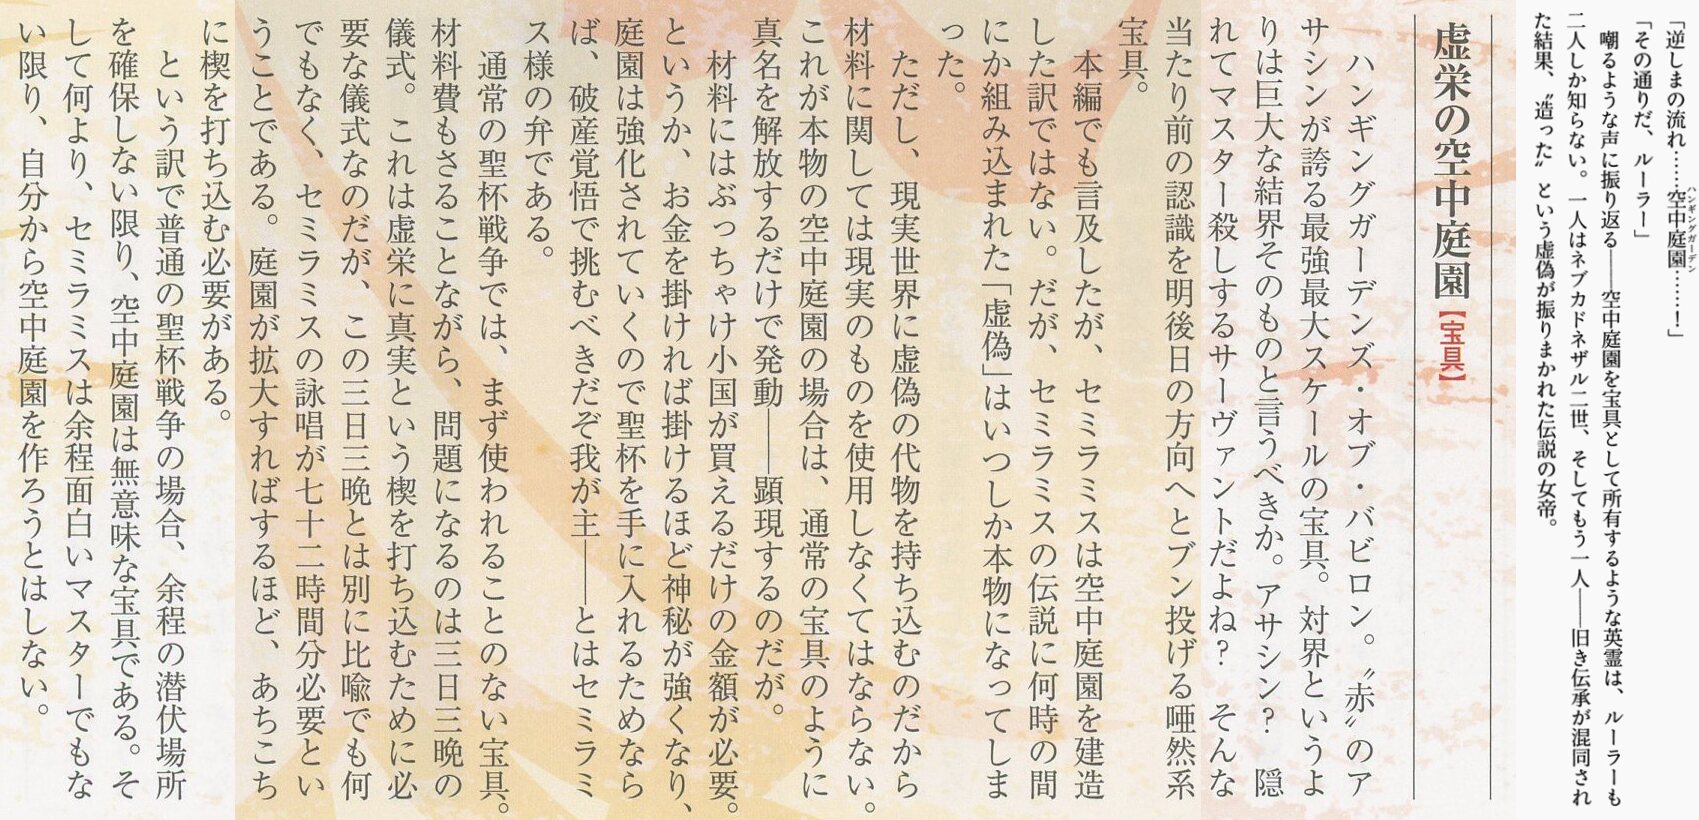 「逆しまの流れ……空中庭園……！」
ハンギングガーデン
「その通りだ、ルーラー」
嘲るような声に振り返る――空中庭園を宝具として所有するような英霊は、ルーラーも
二人しか知らない。一人はネブカドネザル二世、そしてもう一人――旧き伝承が混同され
た結果、〝造った〟という虚偽が振りまかれた伝説の女帝。
虚栄の空中庭園【宝具】
ハンギングガーデンズ・オブ・バビロン。〝赤〟のア
サシンが誇る最強最大スケールの宝具。対界というよ
りは巨大な結界そのものと言うべきか。アサシン？　隠
れてマスター殺しするサーヴァントだよね？　そんな
当たり前の認識を明後日の方向へとブン投げる唖然系
宝具。
本編でも言及したが、セミラミスは空中庭園を建造
した訳ではない。だが、セミラミスの伝説に何時の間
にか組み込まれた「虚偽」はいつしか本物になってしま
った。
ただし、現実世界に虚偽の代物を持ち込むのだから
材料に関しては現実のものを使用しなくてはならない。
これが本物の空中庭園の場合は、通常の宝具のように
真名を解放するだけで発動――顕現するのだが。
材料にはぶっちゃけ小国が買えるだけの金額が必要。
というか、お金を掛ければ掛けるほど神秘が強くなり、
庭園は強化されていくので聖杯を手に入れるためなら
ば、破産覚悟で挑むべきだぞ我が主――とはセミラミ
ス様の弁である。
通常の聖杯戦争では、まず使われることのない宝具。
材料費もさることながら、問題になるのは三日三晩の
儀式。これは虚栄に真実という楔を打ち込むために必
要な儀式なのだが、この三日三晩とは別に比喩でも何
でもなく、セミラミスの詠唱が七十二時間分必要とい
うことである。庭園が拡大すればするほど、あちこち
に楔を打ち込む必要がある。
という訳で普通の聖杯戦争の場合、余程の潜伏場所
を確保しない限り、空中庭園は無意味な宝具である。そ
して何より、セミラミスは余程面白いマスターでもな
い限り、自分から空中庭園を作ろうとはしない。